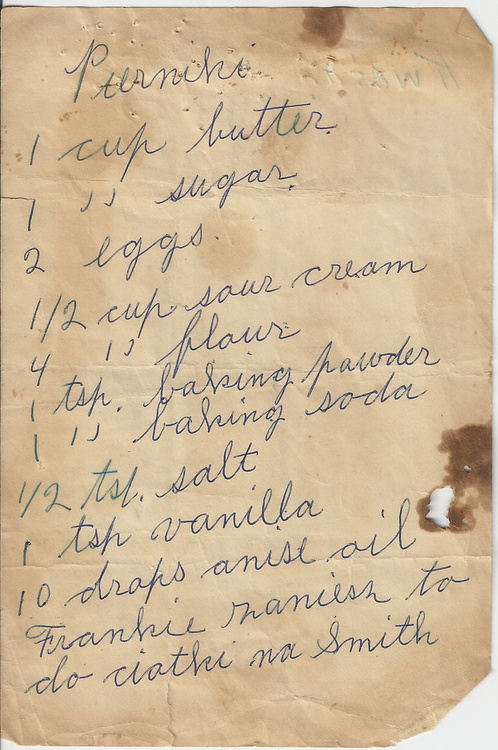 Pierniki
1 cup butter.
1 " sugar.
2 eggs.
1/2 cup sour cream
4 " flour
1 tsp. baking powder
1 " baking soda
1/2 tsp. salt
1 tsp vanilla
10 drops anise oil
Frankie zaniesz to
do ciotki na Smith